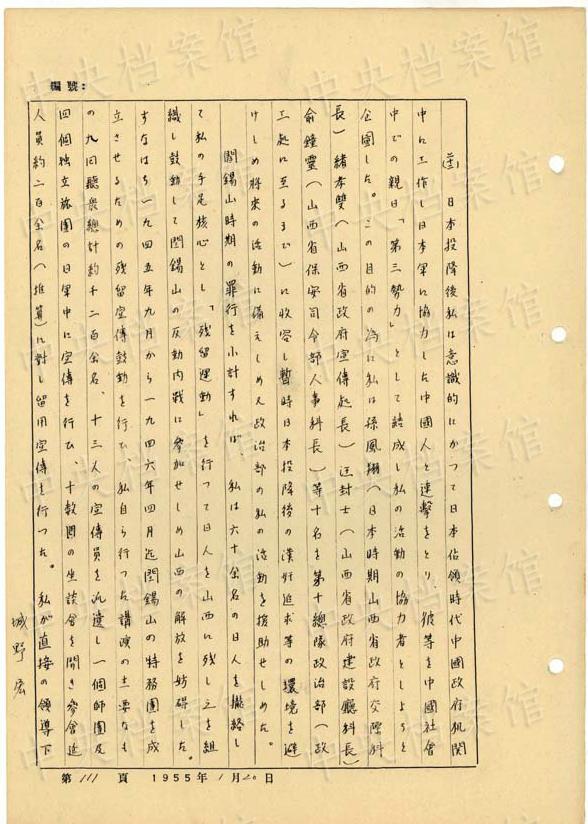 編號：
(五) 日本投降後私は意識的にかつて日本佔領時代中國政府机関
中に工作し日本軍に協力した中國人と連撃をとり、彼等を中國社會
中での親日「第三勢力」として結成し私の活動の協力者としようと
企圖した。この目的の為に私は孫鳳翔（日本時期山西省政府交際科
長）緒孝雙（山西省政府宣傳處長）汪封士（山西省政府建設廳科長）
俞鐘靈（山西省保安司令部人事科長）等十名を第十總隊政治部（政
工處に至るまで）に收容し暫時日本投降後の漢奸追求等の環境を避
けしめ將來の活動に備えしめ又政治部の私の活動を援助せしめた。
閻錫山時期の罪行を小計すれば、私は六十余名の日人を籠絡し
て私の手足核心とし「残留運動」を行って日人を山西に残し之を組
織し鼓動して閻錫山の反動内戰に參加せしめ山西の解放を妨碍した。
すなはち一九四五年九月から一九四六年四月迄閻錫山の特務團を成
立させるための残留宣傳鼓動を行ひ、私自ら行った講演の主要なも
の九回聽衆總計約千二百余名、十三人の宣傳員を派遣し一個師團及
四個独立旅團の日軍中に宣傳を行ひ、十数回の坐談會を開き參會
人員約二百余名（推算）に對し留用宣傳を行った。私が直接の領導下
城野宏
第111頁 1955年1月20日
中央档案馆